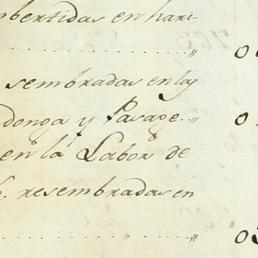 mbertidas en hari-
" 0
sembradas en las
donga y Pasage. " 0
en la Labor de
resembradas en
" 0